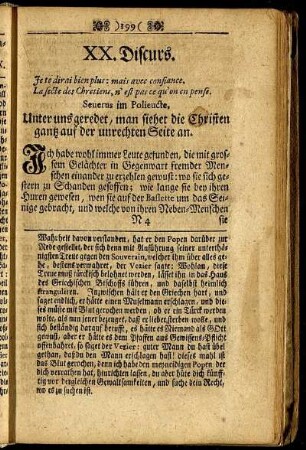 )199(
XX. Discurs.
Je te dirai bien plus: mais avec confiance,
La secte des Chretiens, n'est pas ce qu'on en pense.
Severus im Polieucte.
Unter uns geredet, man siehet die Christen
gantz auf der unrechten Seite an.
Ich habe wohl immer Leute gefunden, die mit gros-
sem Gelächter in Gegenwart fremder Men-
schen einander zu erzehlen gewust: wo sie sich ge-
stern zu Schanden gesoffen; wie lange sie bey ihren
Huren gewesen, wen sie auf der Bassette um das Sei-
nige gebracht, und welche von ihren Neben-Menschen
N 4 sie
Wahrheit davon verstanden, hat er den Popen darüber zur
Rede gestellet, der sich denn mit Anführung seiner unterthä-
nigsten Treue gegen den Souverain, welcher ihm über alles ge-
he, bestens verwahret, der Vezier sagt: Wohlan, diese
Treue muß türckisch belohnet werden, lässet ihn in das Haus
des Griechischen Bischoffs führen, und daselbst heimlich
stranguliren. Inzwischen hält er den Griechen hart, und
saget endlich, er hätte einen Muselmann erschlagen, und die-
ses müste mit Blut gerochen werden, ob er ein Türck werden
wolte, als aber jener bekennet, daß er lieber sterben wolle, und
sich beständig darauf beruft, es hätte es Niemand als GOtt
gewust, aber er hätte es dem Pfaffen aus Gewissens-Pflicht
offenbahret, so saget der Vezier: guter Mann du hast übel
gethan, daß du den Mann erschlagen hast; dieses mahl ist
das Blut gerochen, denn ich habe den meyneidigen Popen der
dich verrathen hat, hinrichten lassen, du aber hüte dich künff-
tig vor dergleichen Gewaltsamkeiten, und suche dein Recht,
wo es zu suchen ist.